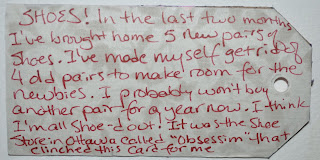 SHOES! In the last two months
I've brought home 5 new pairs of
Shoes. I've made myself get rid of
4 old pairs to make room for the
newbies. I probably won't buy
another pair for a year now. I think
I'm all shoe-d out! It was the Shoe
Store in Ottawa called "Obsession" that
clinched this card for me